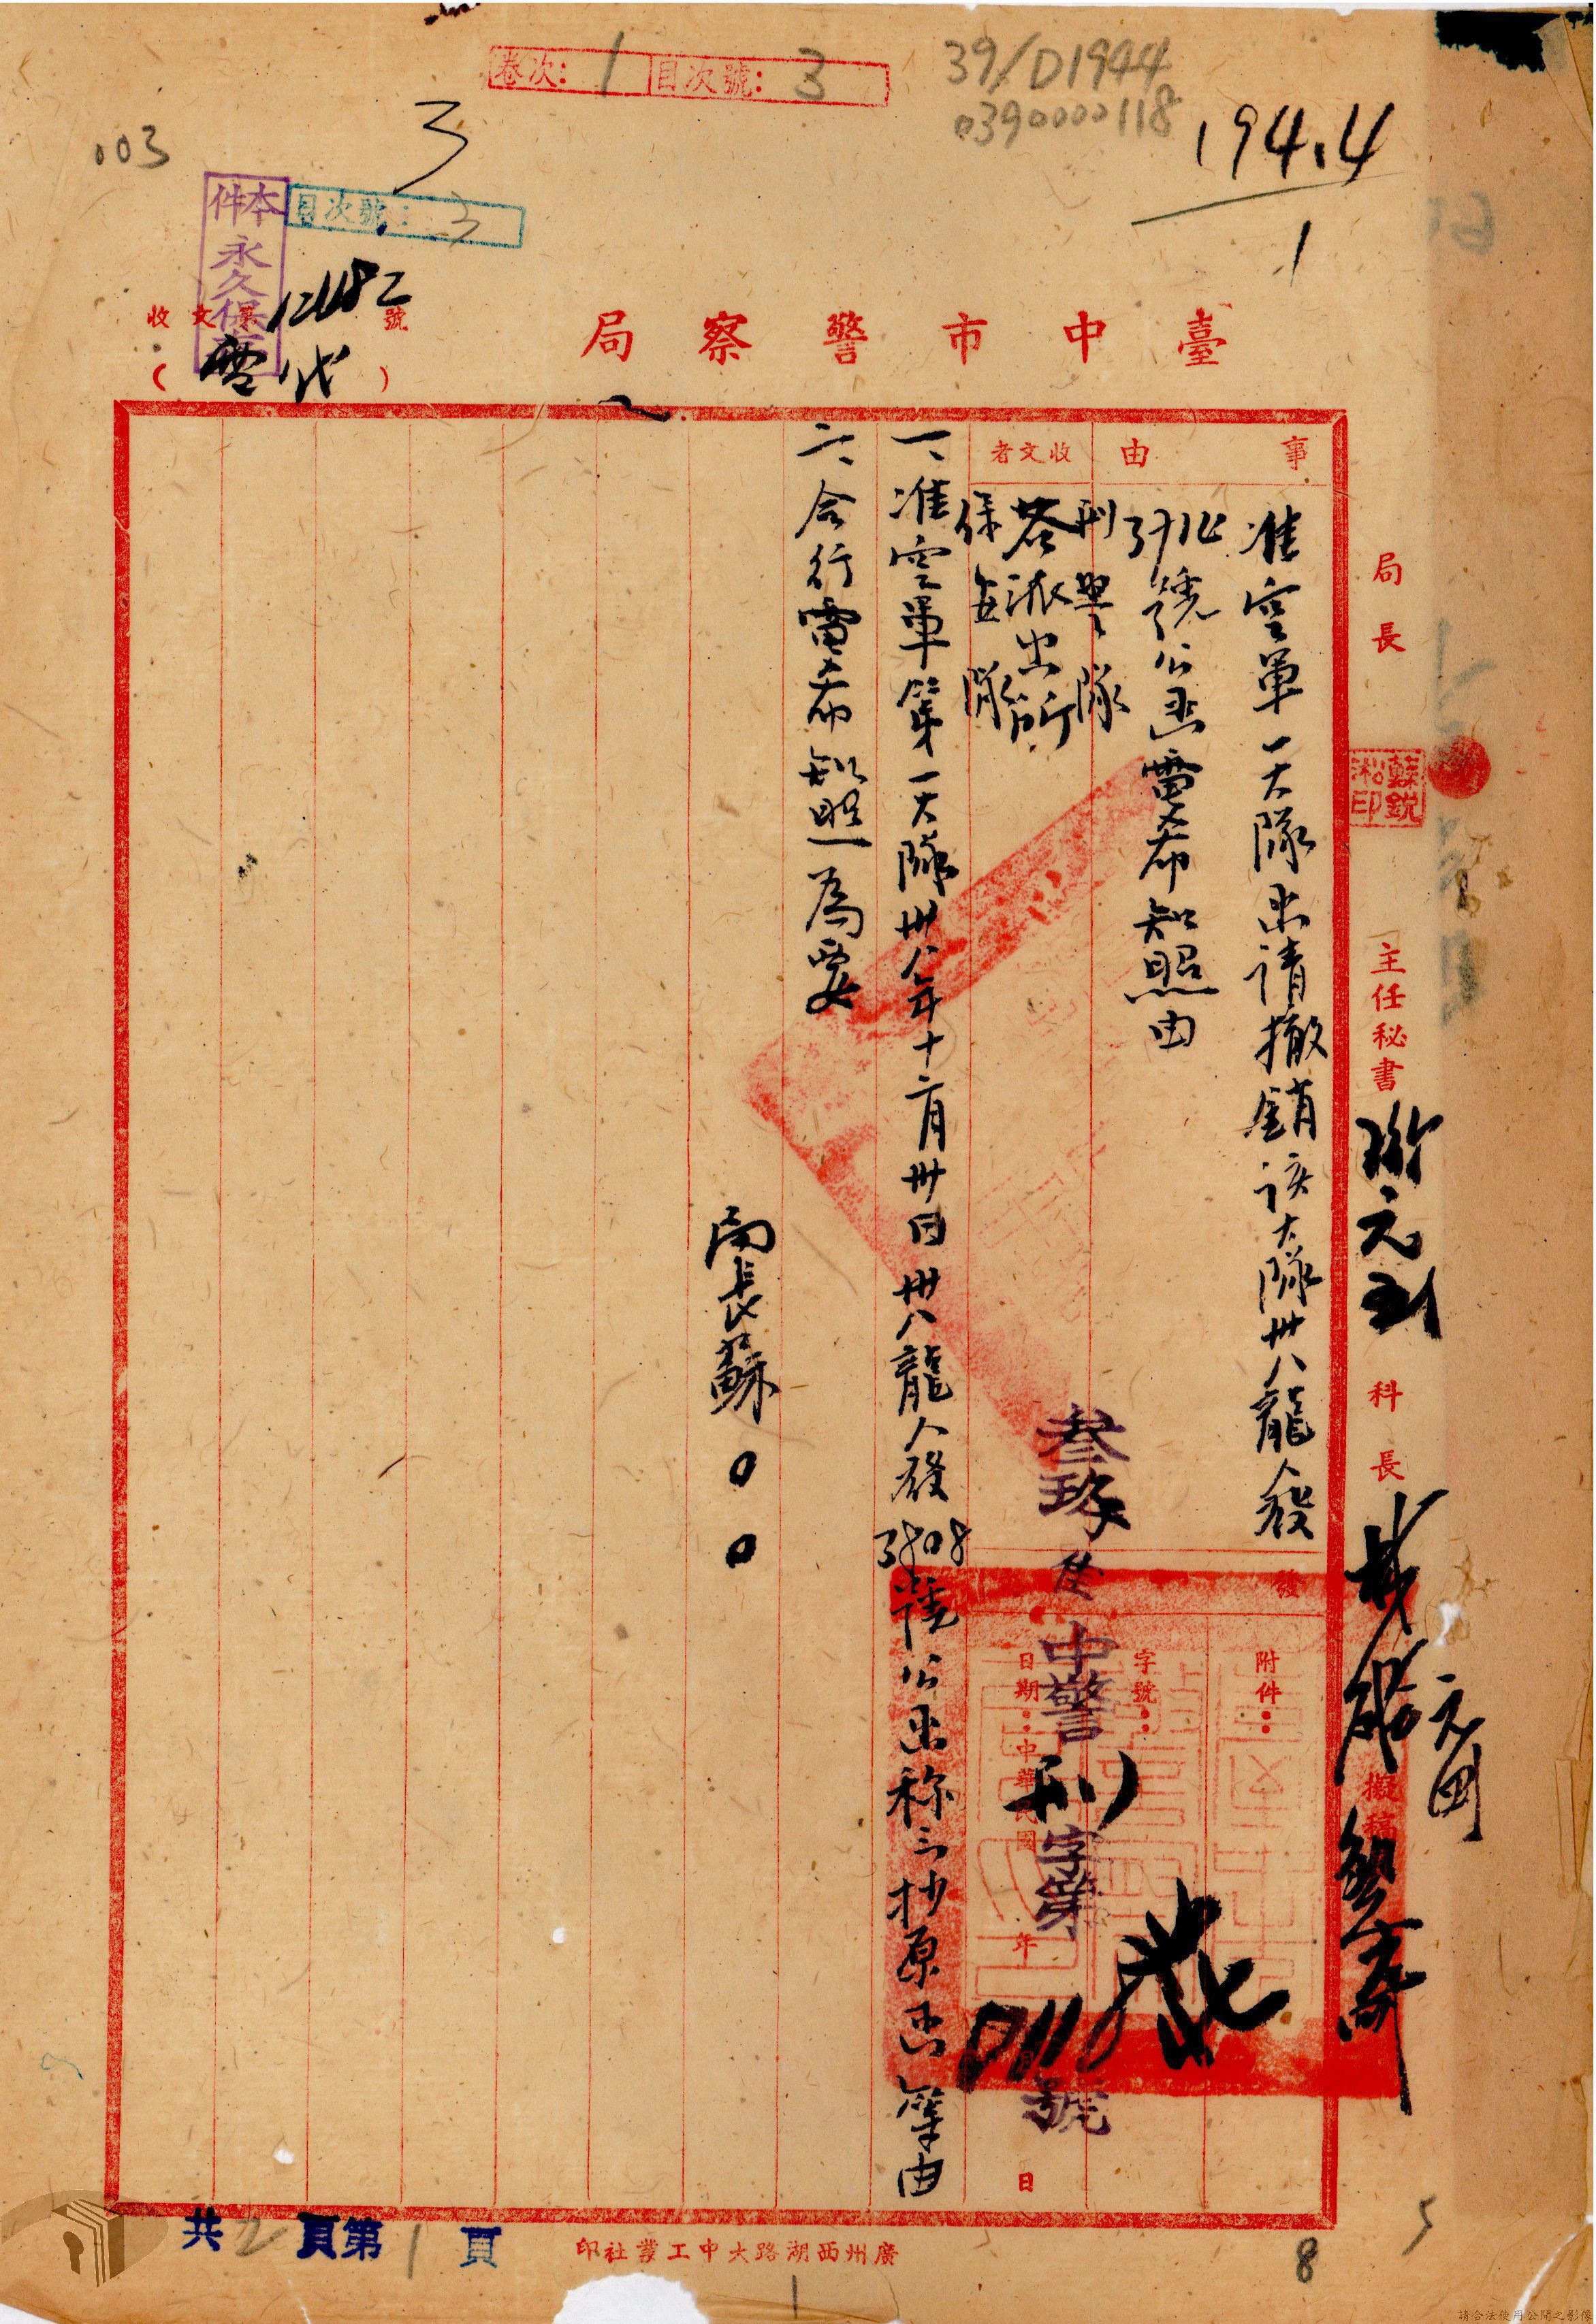 卷次：1 目次號：3
39/D1944
0390000118
194.4
1
003
3
本件永久保存
目次號：3
收文 號
臺中市警察局
事由
准空軍一大隊函請撤銷該大隊卅八龍人發
號公函電希知照由
收文者
刑警隊
各派出所
保安隊
附件：
字號：
日期：中華民國 年 日
叁玖 中警刑字第 號
一、准空軍第一大隊卅八年十二月卅日卅八龍人發3808號公函稱云抄原函等由
二、合行電希知照為要
局長蘇○○
局長
蘇銳淞印
主任秘書
科長
擬稿
共2頁第1頁
廣州西湖路大中工業社印
8
5
1
請合法使用公開之影像